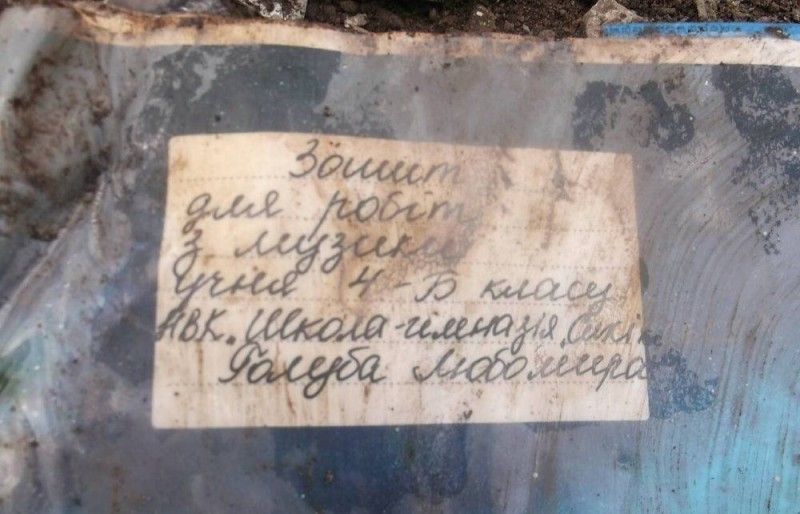 Зошит
для робіт
з музики
учня 4-Б класу
НВК „Школа-гімназія
Голуба Любомира